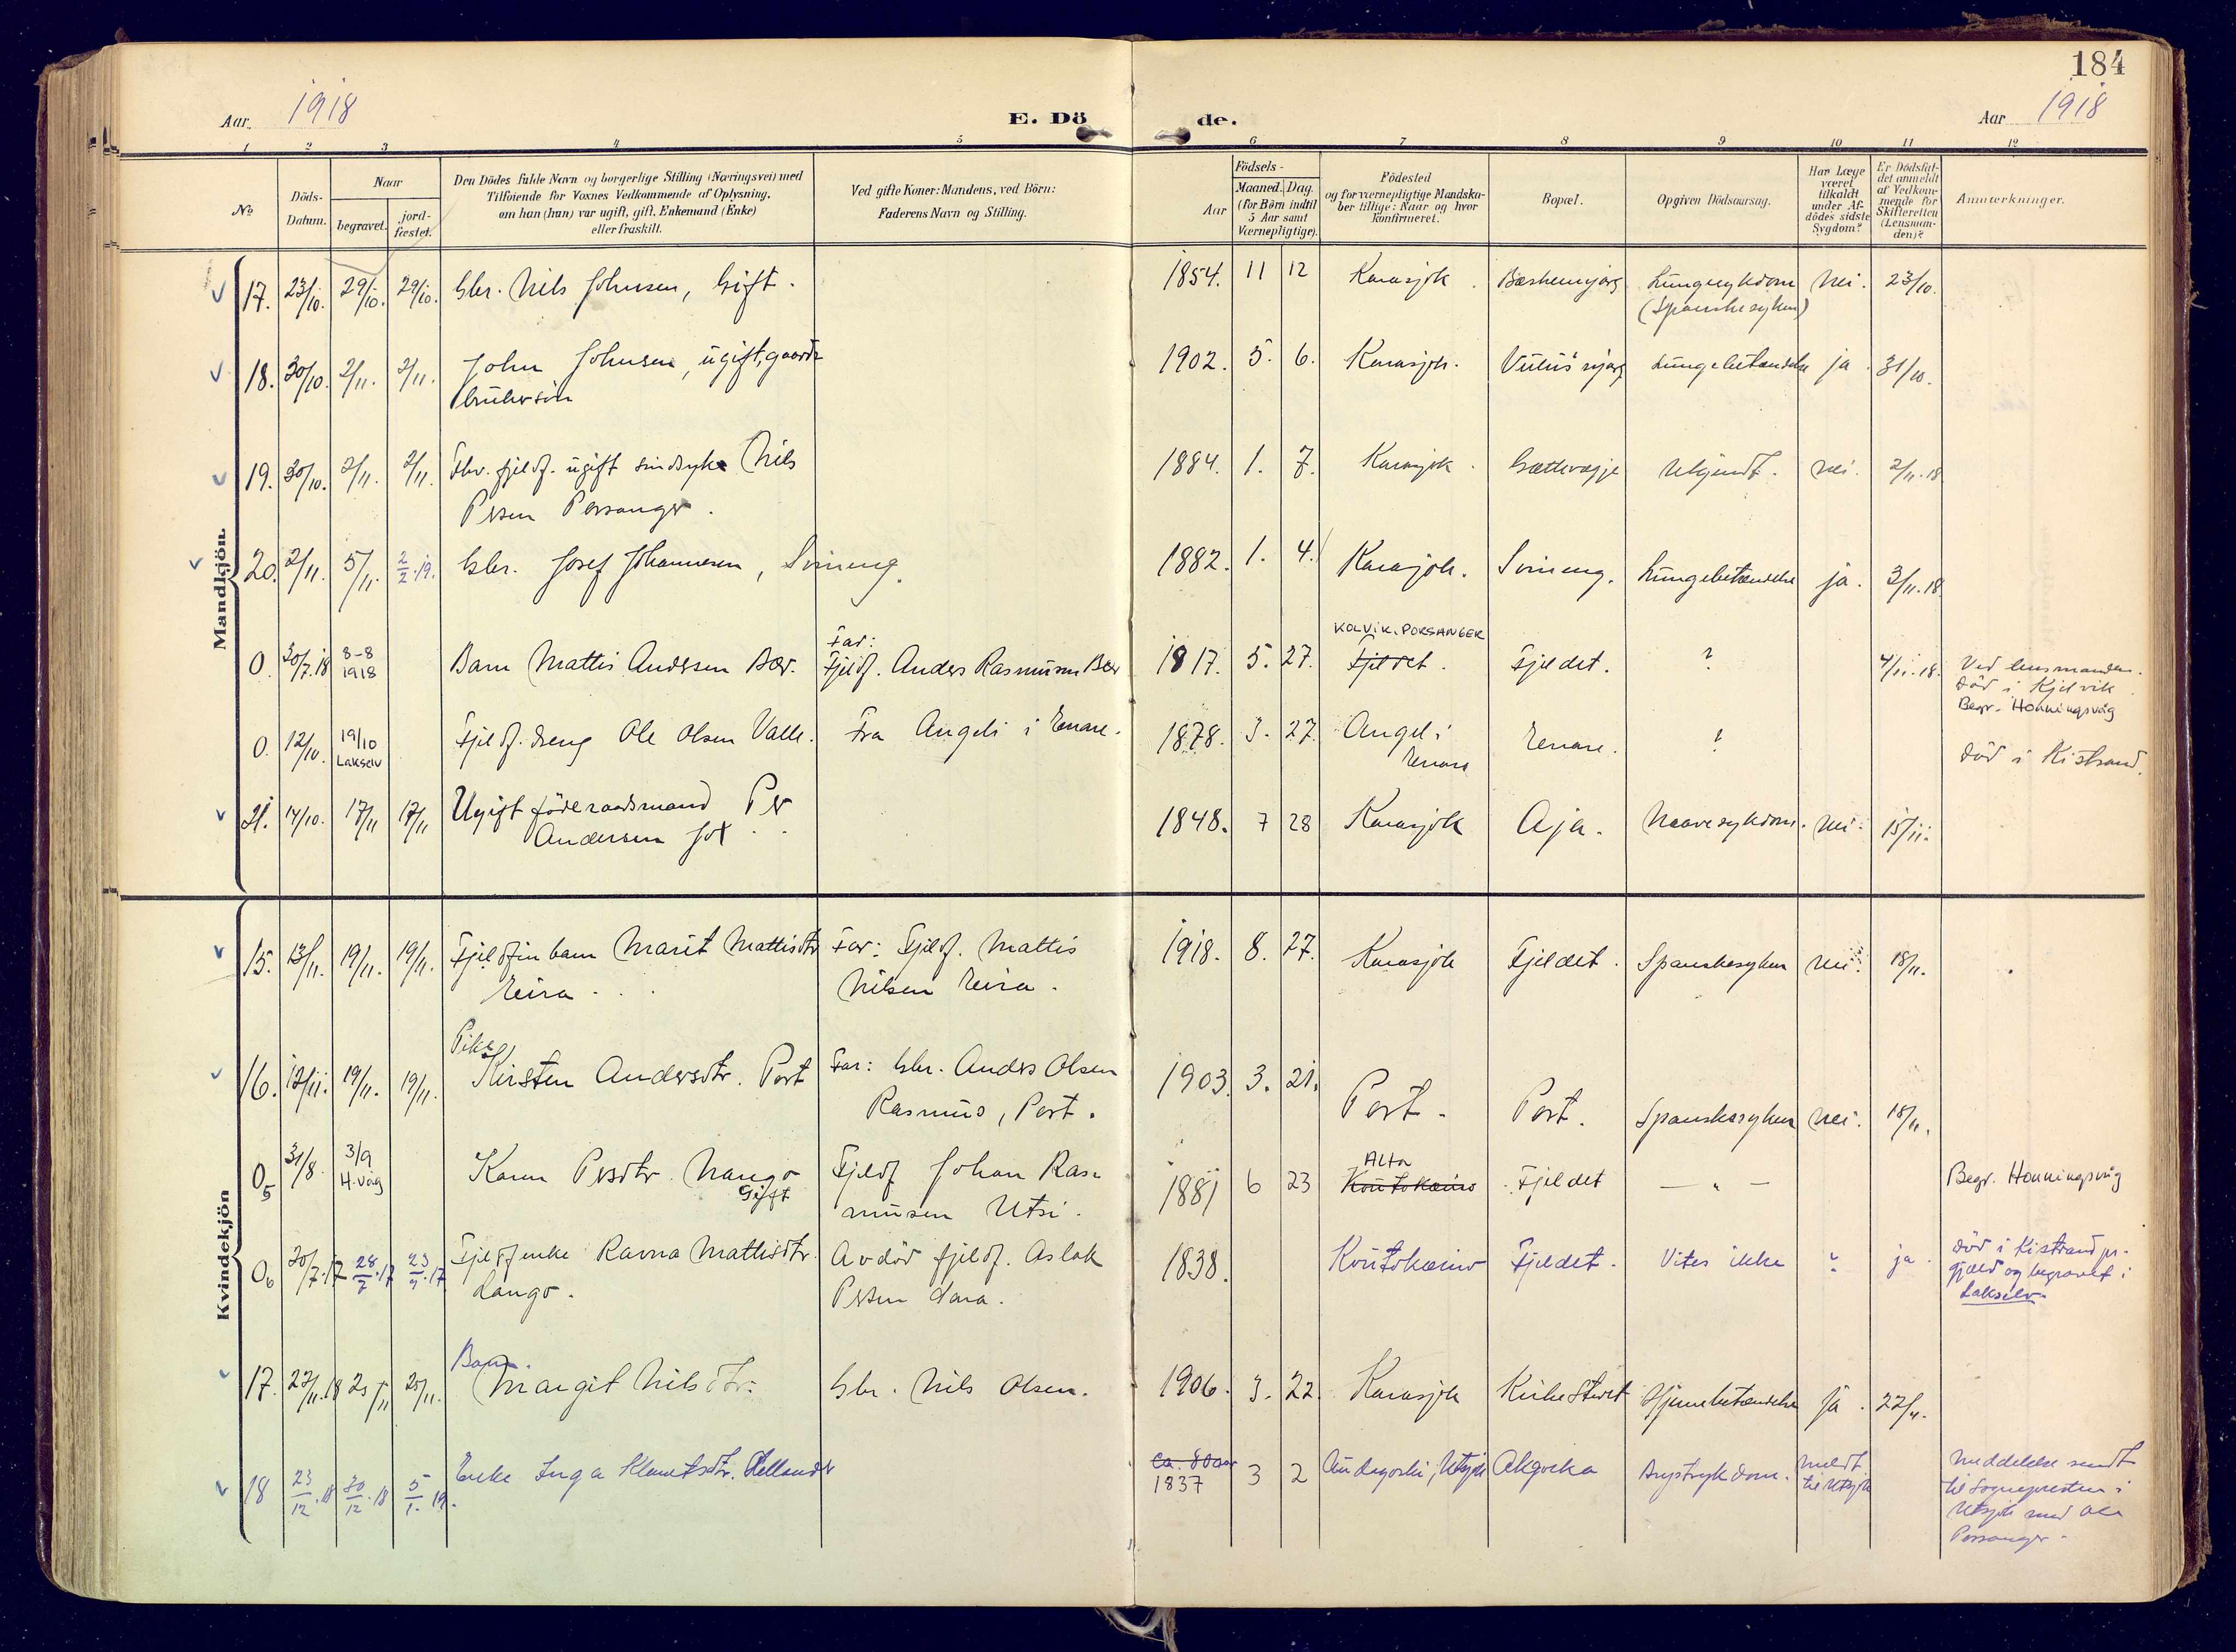 184
Aar 1918
E. Dö de.
Aar 1918
1 2 3 4 5 6 7 8 9 10 11 12
No
Döds-
Datum.
Naar
begravet.
jord-
fæstet.
Den Dödes fulde Navn og borgerlige Stilling (Næringsvei) med
Tilföiende for Voxnes Vedkommende af Oplysning,
om han (hun) var ugift, gift, Enkemand (Enke)
eller fraskilt.
Ved gifte Koner: Mandens, ved Börn:
Faderens Navn og Stilling.
Födsels-
Aar
Maaned. Dag.
(for Börn indtil
5 Aar samt
Værnepligtige).
Födested
og for værnepligtige Mandska-
ber tillige: Naar og hvor
konfirmeret.
Bopæl.
Opgiven Dödsaarsag.
Har Læge
været
tilkaldt
under Af-
dödes sidste
Sygdom?
Er Dödsfal-
det anmeldt
af Vedkom-
mende for
Skifteretten
(Lensman-
den)?
Anmærkninger.
Mandkjön.
17. 23/10. 29/10. 29/10. Gbr. Nils Johnsen, Gift. 1854. 11 12 Karasjok. Lungesykdom Nei. 23/10.
(Spanskesyken)
18. 30/10. 2/11. 2/11. John Johnsen, ugift, gaard- 1902. 5. 6. Karasjok. Lungebetændelse ja. 31/10.
brukersön
19. 30/10. 2/11. 2/11. Fhv. fjeldf. ugift sindsyke Nils 1884. 1. 7. Karasjok. Ukjendt. Nei. 2/11.18
Persen Porsanger.
20. 2/11. 5/11. 2/2.19. Gbr. Josef Johannesen, 1882. 1. 4. Karasjok. Lungebetændelse ja. 3/11.18.
0. 30/7.18 8-8 1918 Barn Mattis Andersen Bær. Far: Fjeldf. Anders Rasmussen Bær 1817. 5. 27. KOLVIK. PORSANGER Fjeldet. Fjeldet. ? 4/11.18. Ved lensmanden.
Död i Kjelvik.
Begr. Honningsvåg
0. 12/10. 19/10 Lakselv Fjeldf. dreng Ole Olsen Valle. Fra Angeli i Enare. 1878. 3. 27. Angeli Enare Enare. ? Död i Kistrand.
21. 14/10. 17/11 17/11 Ugift föderaadsmand Per 1848. 7 28 Karasjok Aja. Mavesykdom. Nei. 15/11.
Andersen Jox
Kvindekjön
15. 13/11. 19/11. 19/11. Fjeldfinbarn Marit Mattisdtr Far: Fjeldf. Mattis 1918. 8. 27. Karasjok Fjeldet. Spanskesyken Nei. 18/11.
Eira. Nilsen Eira.
16. 12/11. 19/11. 19/11. Pike Kirsten Andersdtr. Port Far: Gbr. Anders Olsen 1903. 3. 21. Port. Port. Spanskesyken Nei. 18/11.
Rasmus, Port.
0 5 31/8. 3/9 H.våg Karen Persdtr. Nango Gift Fjeldf Johan Ras- 1881 6 23 Alta Koutokæino Fjeldet — " — Begr. Honningsvåg
musen Utsi.
0 6 20/7.17 28/7.17 23/9.17 Fjeldfenke Ravna Mattisdtr. Avdöd fjeldf. Aslak 1838. Koutokæino Fjeldet. Vites ikke ? ja. Död i Kistrand pr-
Persen Sara. gjæld og begravet i
Lakselv.
17. 22/11.18 25/11 25/11. Barn. Margit Nilsdtr. Gbr. Nils Olsen. 1906. 3. 22. Karasjok Kirkestedet Hjernebetændelse Ja. 22/11.
18 23/12.18 30/12.18 5/1.19. Enke Inga Klemetsdtr. Hellander ca. 80 aar 1837 3 2 Utsjok Brystsykdom. meldt til Utsjok Meddelelse sendt
til Sognepresten i
Utsjok med Ole
Porsanger.